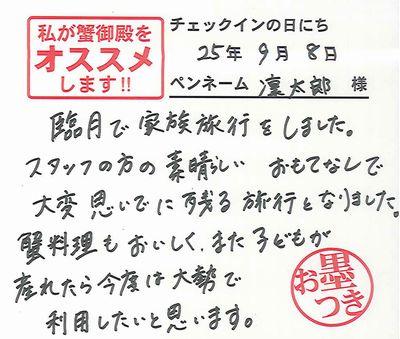 私が蟹御殿を
オススメ
します!!
チェックインの日にち
25年 9月 8日
ペンネーム 凛太郎 様
臨月で家族旅行をしました。
スタッフの方の素晴らしい おもてなしで
大変思いでに残る旅行となりました。
蟹料理もおいしく、また子どもが
産れたら今度は大勢で
利用したいと思います。
お墨つき